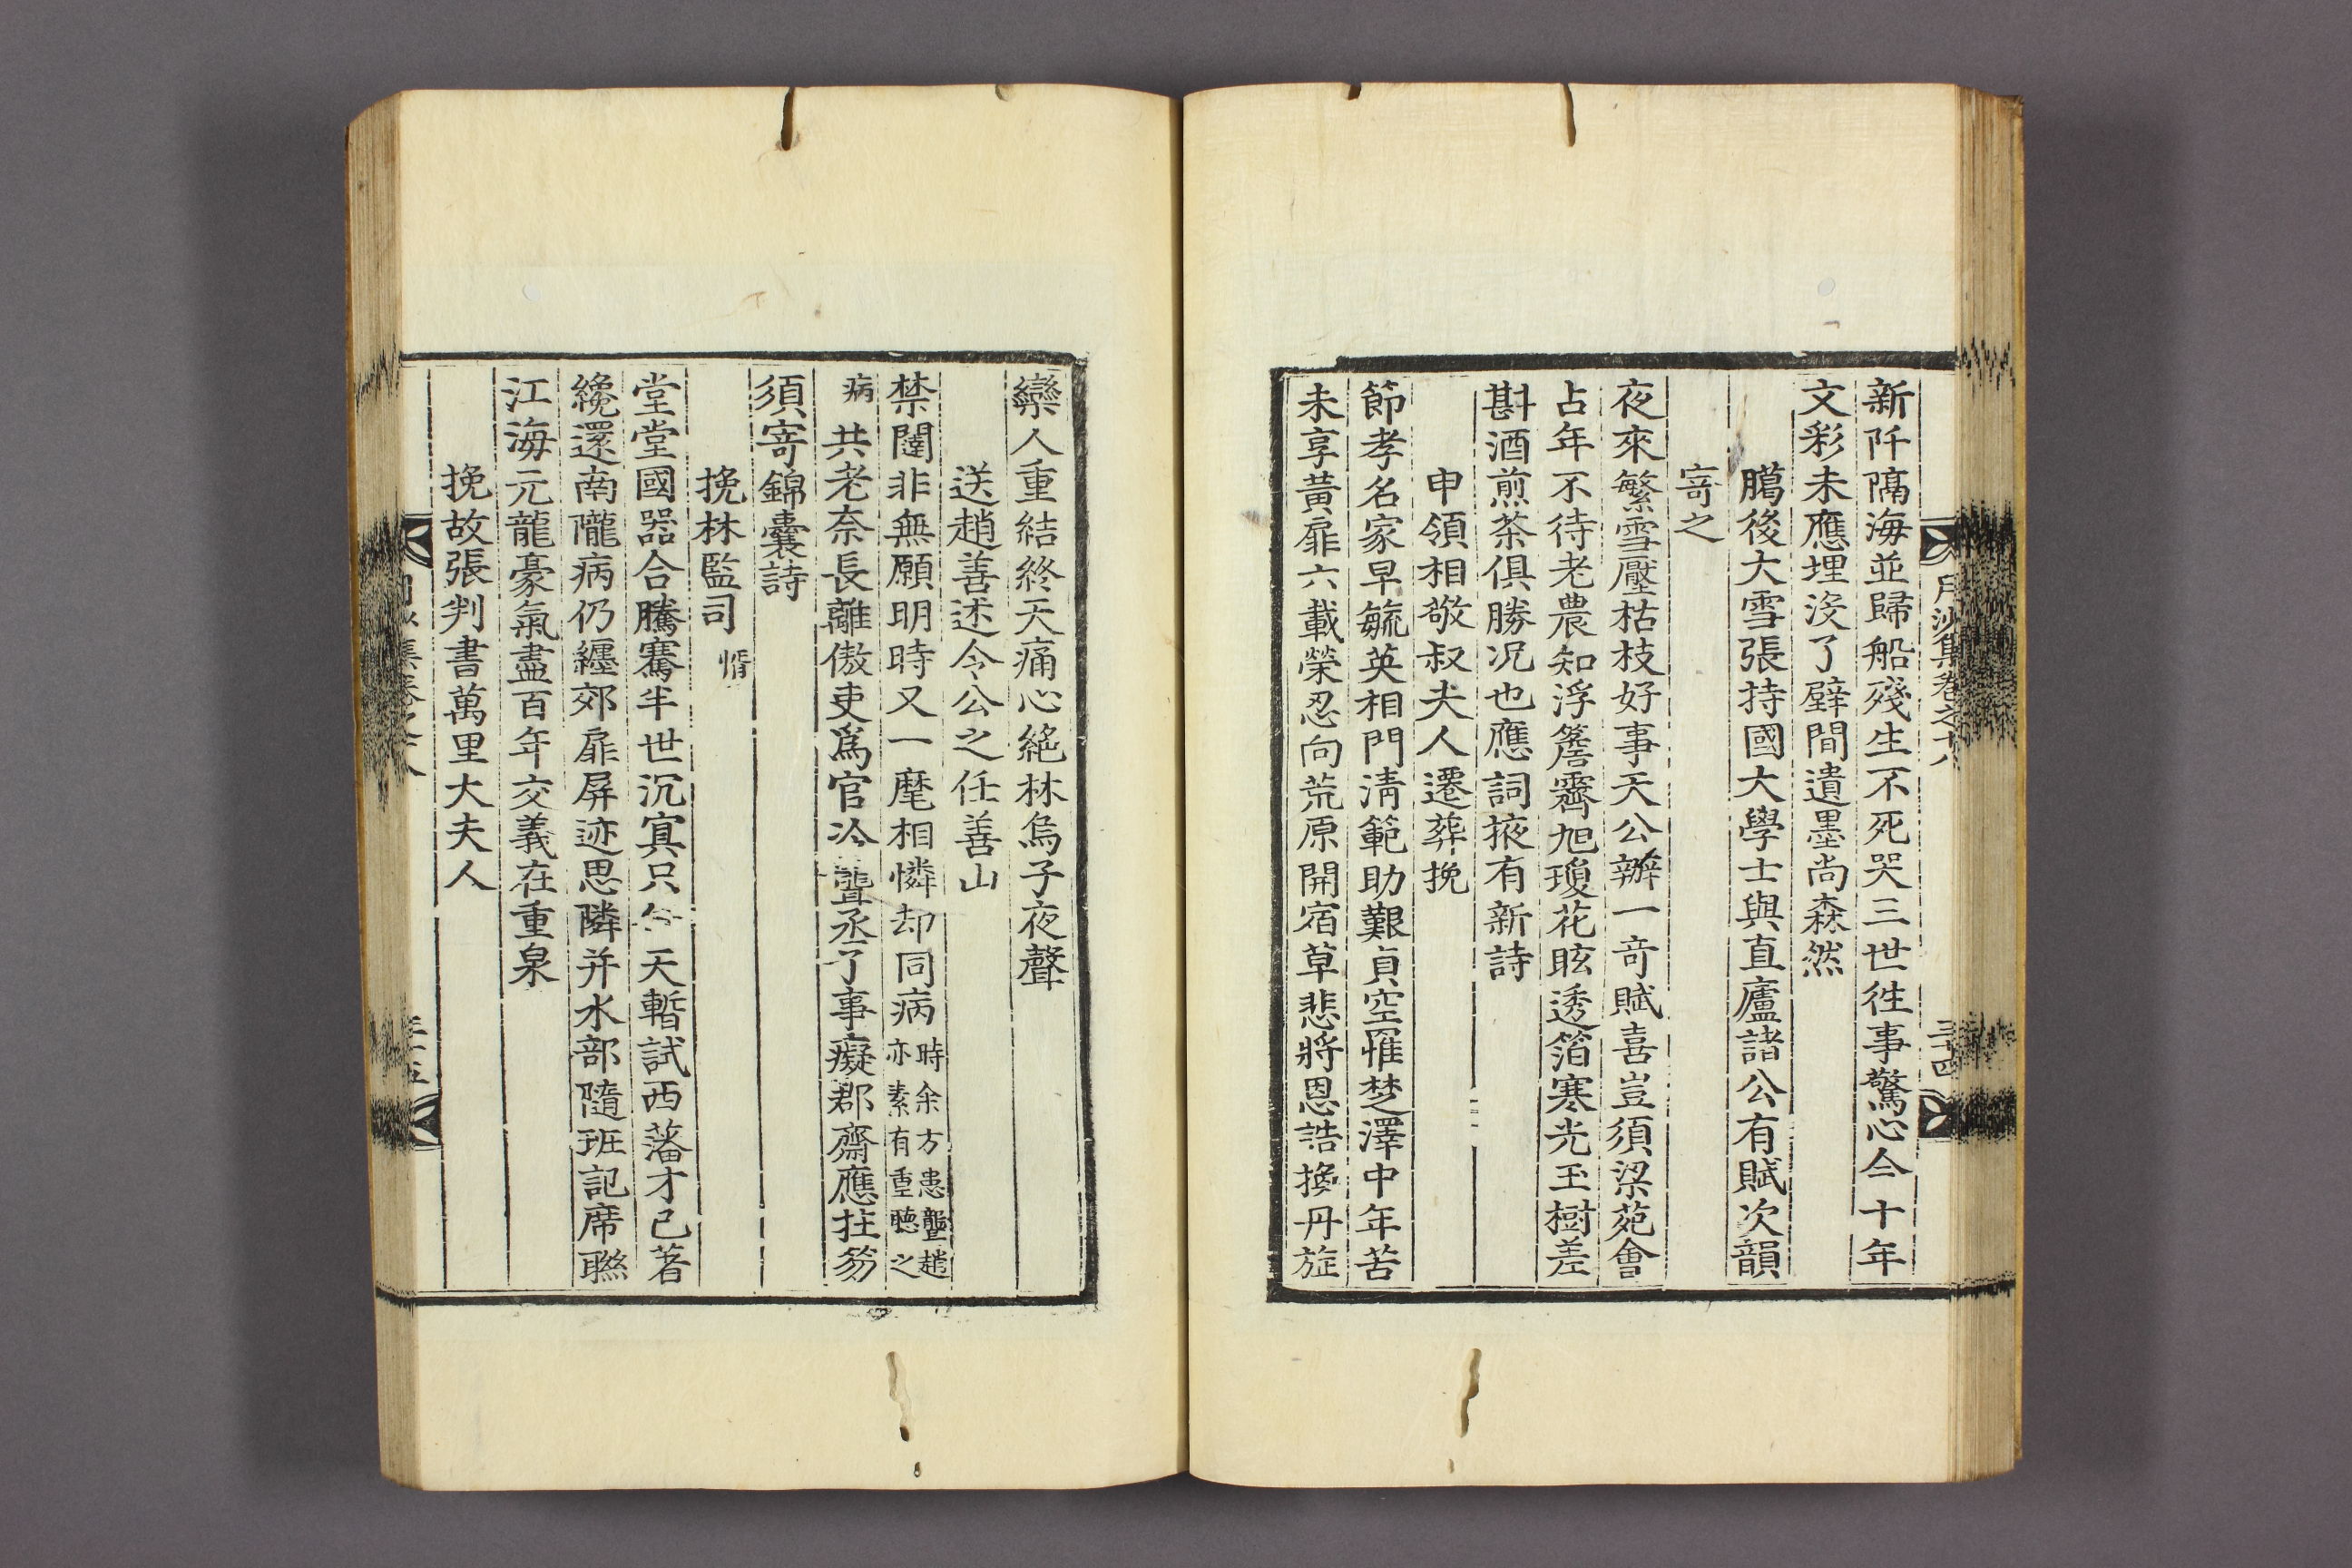 月沙集卷之十八
三十四
新阡隔海並歸船殘生不死哭三世徃事驚心今十年
文彩未應埋沒了壁間遺墨尙森然
臈後大雪張持國大學士與直廬諸公有賦次韻
寄之
夜來繁雪壓枯枝好事天公辦一奇賦喜豈須梁苑會
占年不待老農知浮簷霽旭瓊花眩透箔寒光玉樹差
斟酒煎茶俱勝况也應詞掖有新詩
申領相敬叔夫人遷葬挽
節孝名家早毓英相門淸範助艱貞空罹楚澤中年苦
未享黃扉六載榮忍向荒原開宿草悲將恩誥換丹旌
欒人重結終天痛心絶林烏子夜聲
送趙善述令公之任善山
禁闥非無願明時又一麾相憐却同病時余方患聾趙亦素有重聽之
病共老奈長離傲吏爲官冷聾丞了事癡郡齋應拄笏
須寄錦囊詩
挽林監司㥠
堂堂國器合騰騫半世沉冥只天暫試西藩才已著
纔還南隴病仍纏郊扉屛迹思隣幷水部隨班記席聯
江海元龍豪氣盡百年交義在重泉
挽故張判書萬里大夫人
集卷之十八
三十五